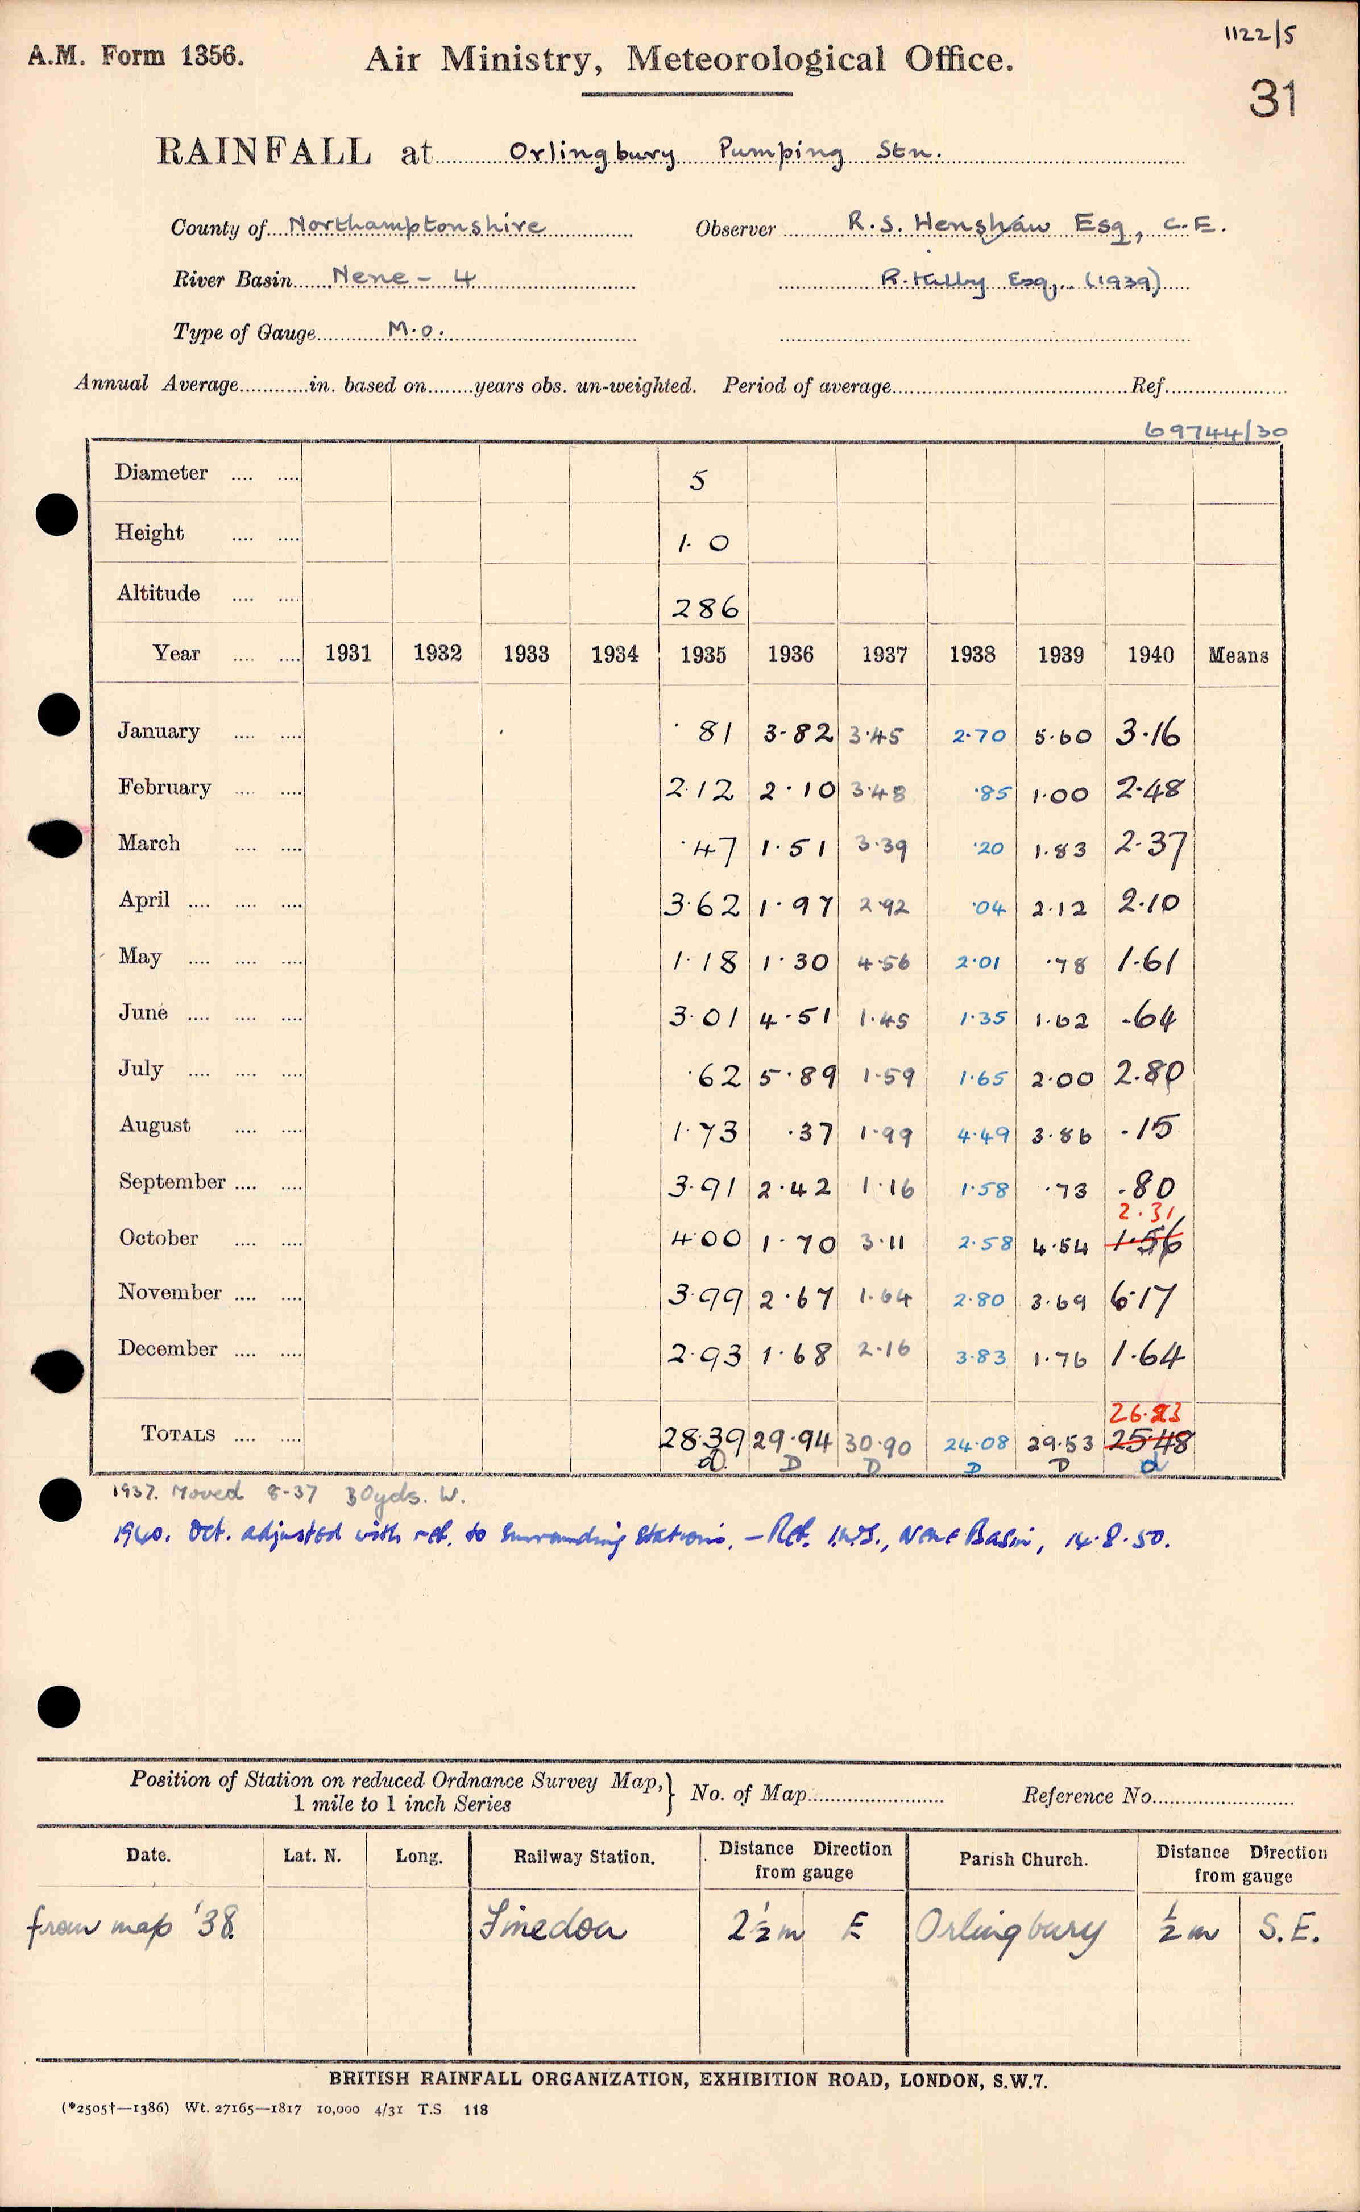 1122/5
A.M. Form 1356. Air Ministry, Meteorological Office.
31
RAINFALL at Orlingbury Pumping Stn.
County of Northamptonshire Observer R.S. Henshaw Esq, C.E.
River Basin Nene - 4 R. Kilby Esq, (1939)
Type of Gauge M.O.
Annual Average in. based on years obs. un-weighted. Period of average Ref.
69744/30
Diameter 5
Height 1.0
Altitude 286
Year 1931 1932 1933 1934 1935 1936 1937 1938 1939 1940 Means
January .81 3.82 3.45 2.70 5.60 3.16
February 2.12 2.10 3.48 .85 1.00 2.48
March .47 1.51 3.39 .20 1.83 2.37
April 3.62 1.97 2.92 .04 2.12 2.10
May 1.18 1.30 4.56 2.01 .78 1.61
June 3.01 4.51 1.45 1.35 1.62 .64
July .62 5.89 1.59 1.65 2.00 2.80
August 1.73 .37 1.99 4.49 3.86 .15
September 3.91 2.42 1.16 1.58 .73 .80
2.31
October 4.00 1.70 3.11 2.58 4.54 1.56
November 3.99 2.67 1.64 2.80 3.69 6.17
December 2.93 1.68 2.16 3.83 1.76 1.64
26.23
TOTALS 28.39 29.94 30.90 24.08 29.53 25.48
D D D D D d
1937. Moved 8-37 30yds. W.
1940. Oct. adjusted with ref. to surrounding stations. - Ref. I.W.S., Nene Basin, 14.8.50.
Position of Station on reduced Ordnance Survey Map, } No. of Map Reference No.
1 mile to 1 inch Series
Date. Lat. N. Long. Railway Station. Distance Direction from gauge Parish Church. Distance Direction from gauge
from map '38. Finedon 2½ m E Orlingbury ½ m S.E.
BRITISH RAINFALL ORGANIZATION, EXHIBITION ROAD, LONDON, S.W.7.
(*2505†—1386) Wt. 27165—1817 10,000 4/31 T.S 118